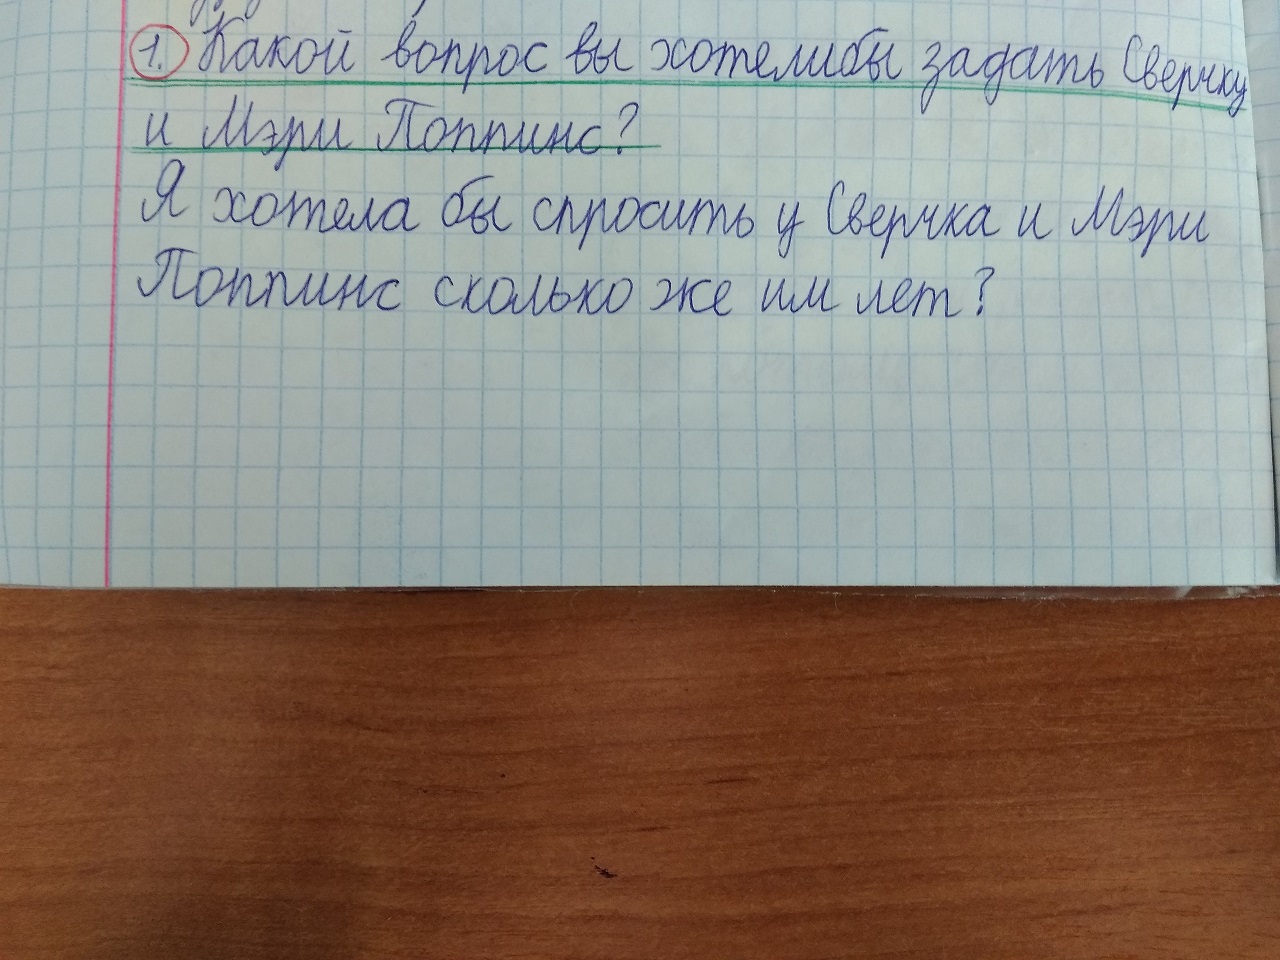 1. Какой вопрос вы хотелибы задать Сверчку
и Мэри Поппинс?
Я хотела бы спросить у Сверчка и Мэри
Поппинс сколько же им лет?